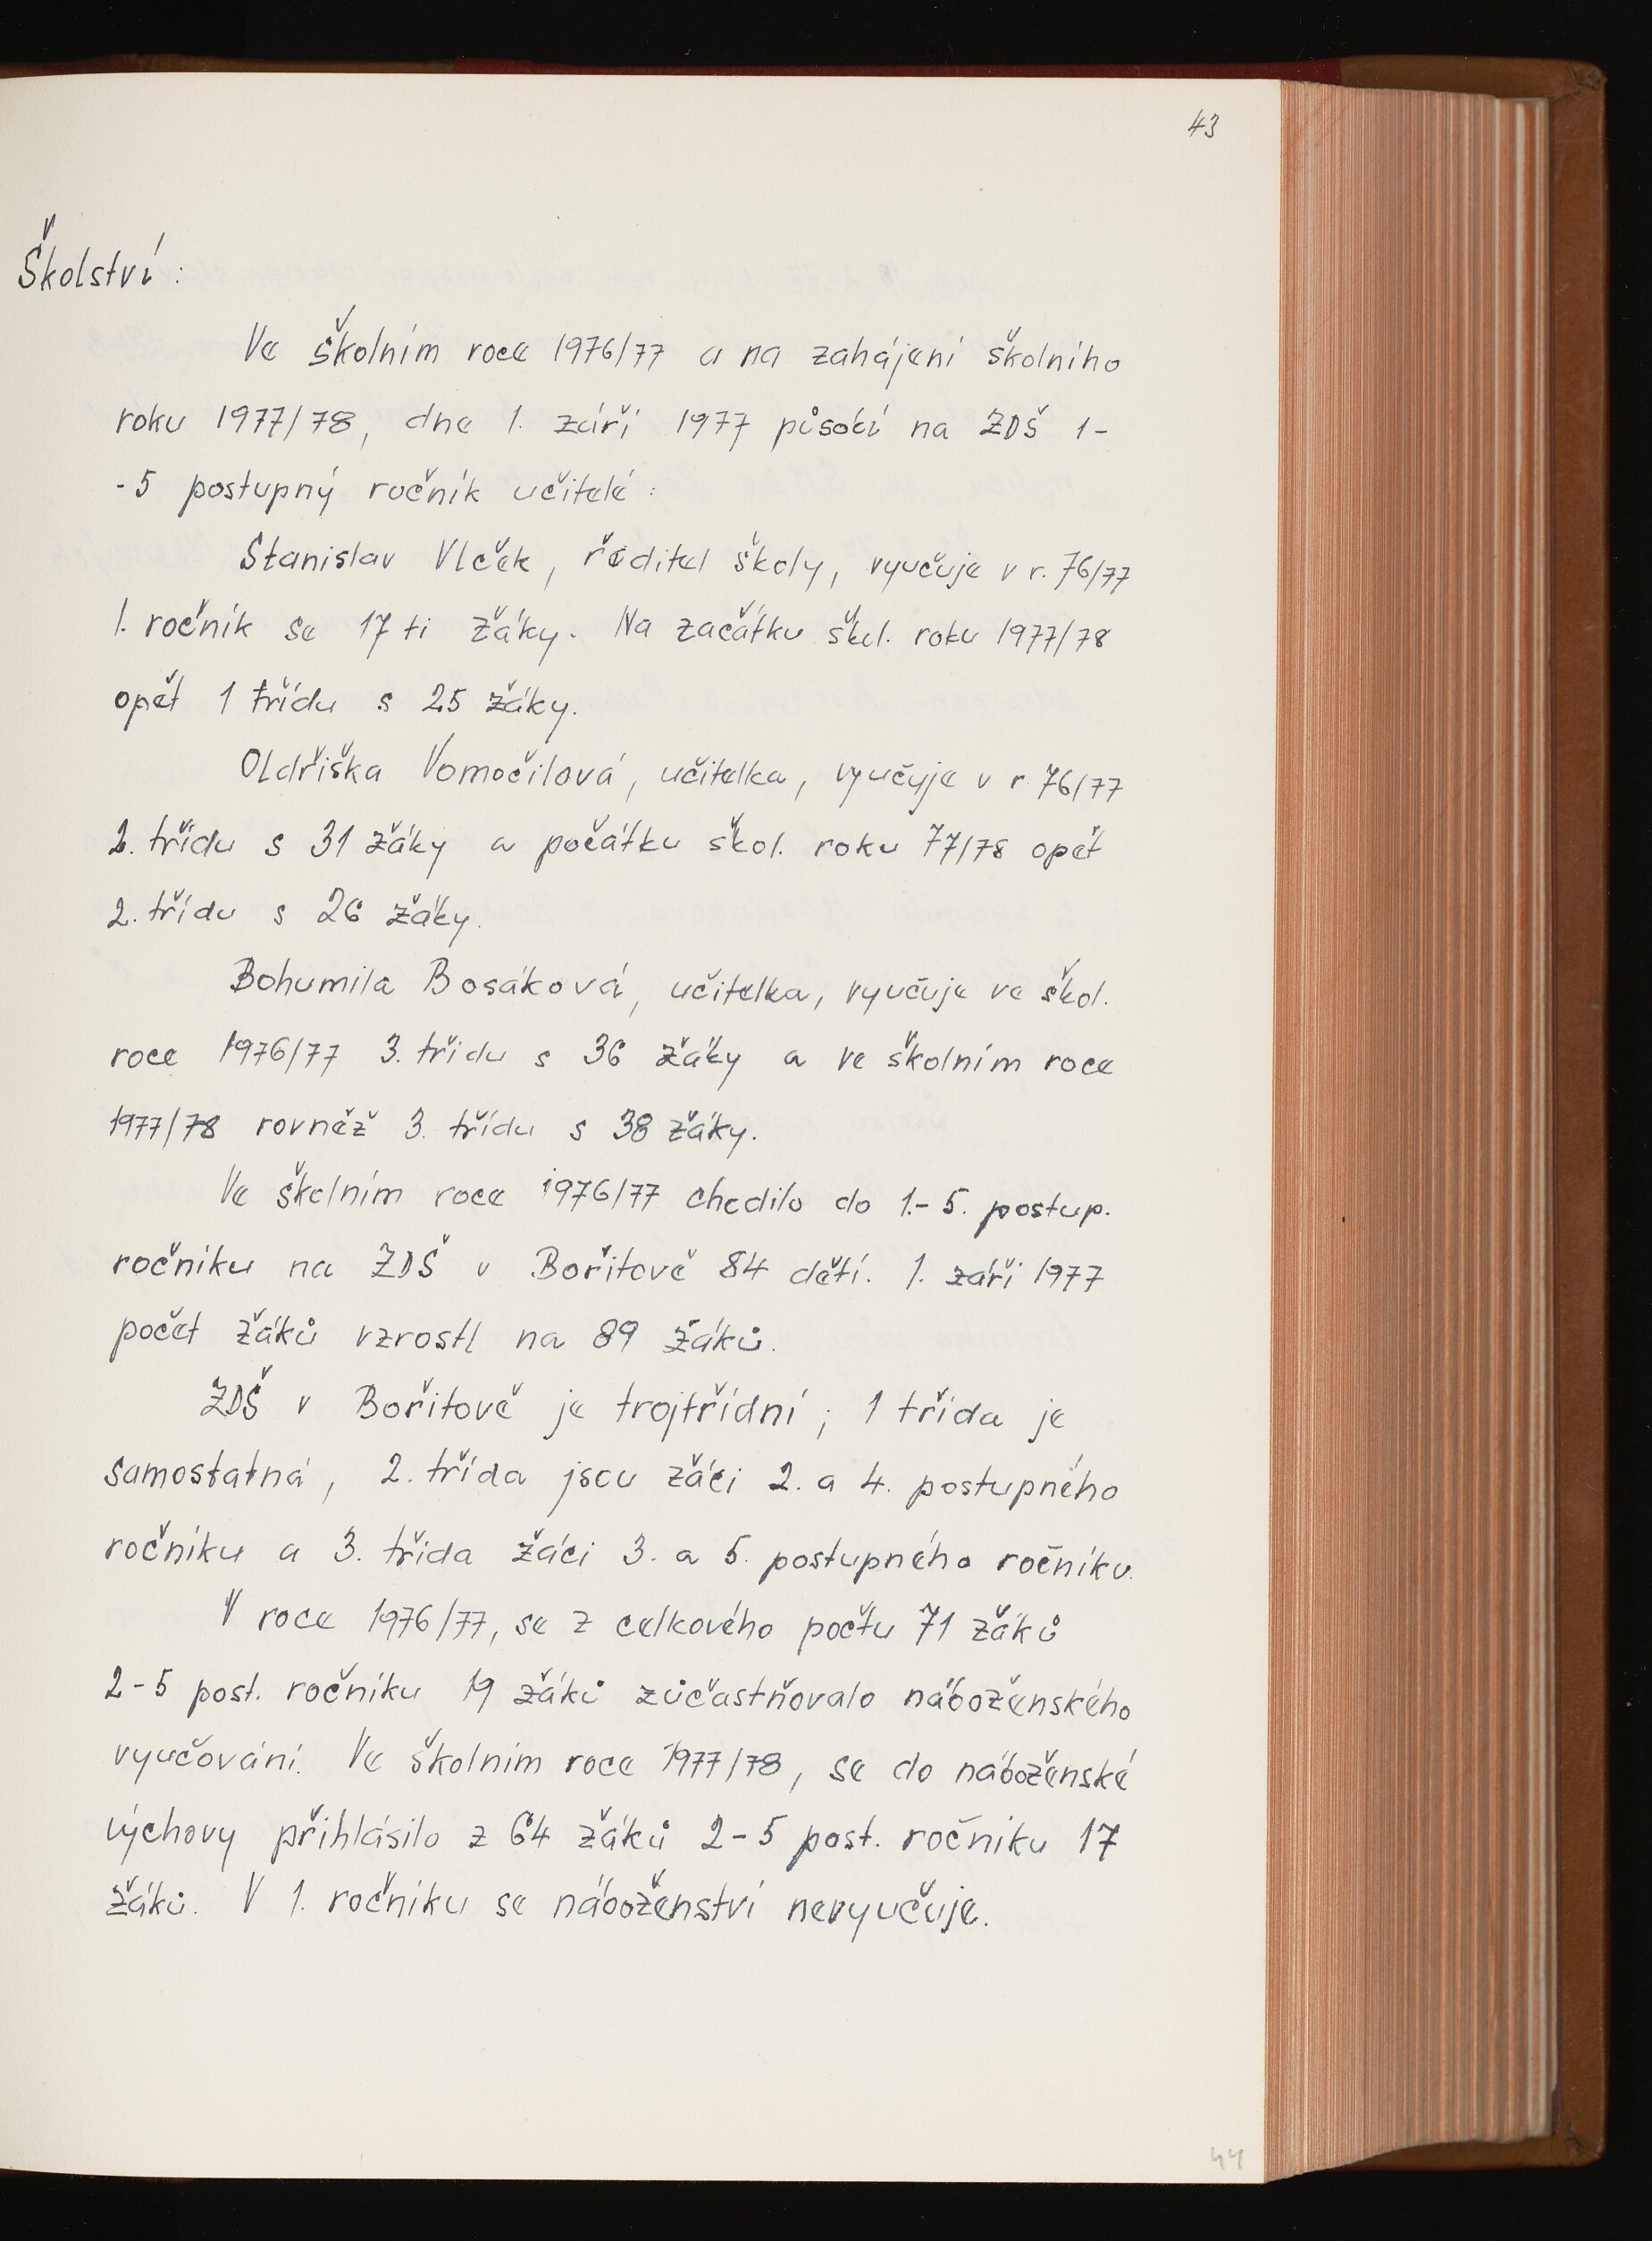 43
Školství:
Ve školním roce 1976/77 a na zahájení školního
roku 1977/78, dne 1. září 1977 působí na ZDŠ 1-
-5 postupný ročník učitelé:
Stanislav Vlček, ředitel školy, vyučuje v r. 76/77
1. ročník se 17 ti žáky. Na začátku škol. roku 1977/78
opět 1 třídu s 25 žáky.
Oldřiška Vomočilová, učitelka, vyučuje v r. 76/77
2. třídu s 31 žáky a počátku škol. roku 77/78 opět
2. třídu s 26 žáky.
Bohumila Bosáková, učitelka, vyučuje ve škol.
roce 1976/77 3. třídu s 36 žáky a ve školním roce
1977/78 rovněž 3. třídu s 38 žáky.
Ve školním roce 1976/77 chodilo do 1.-5. postup.
ročníku na ZDŠ v Bořitově 84 dětí. 1. září 1977
počet žáků vzrostl na 89 žáků.
ZDŠ v Bořitově je trojtřídní; 1 třída je
samostatná, 2. třída jsou žáci 2. a 4. postupného
ročníku a 3. třída žáci 3. a 5. postupného ročníku.
V roce 1976/77, se z celkového počtu 71 žáků
2-5 post. ročníku 19 žáků zůčastňovalo náboženského
vyučování. Ve školním roce 1977/78, se do náboženské
výchovy přihlásilo z 64 žáků 2-5 post. ročníku 17
žáků. V 1. ročníku se náboženství nevyučuje.
44